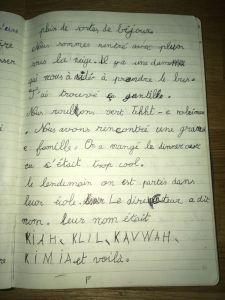 plein de sortes de bijoux.
Nous sommes rentré avec
sous la neige. Il y a une dame
qui nous à aidé à prendre le bus.
J'ai trouvé ça gentille.
Nous roulions vert
. Nous avons rencontré une grand
e famille. On a mangé le dinner avec
eu c'était trop cool.
le lendemain on est partis dans
leur école. Le directeur a dit
non. leur nom était
KIAH, KLIL, KAVWAH,
KIMIA et voilà.